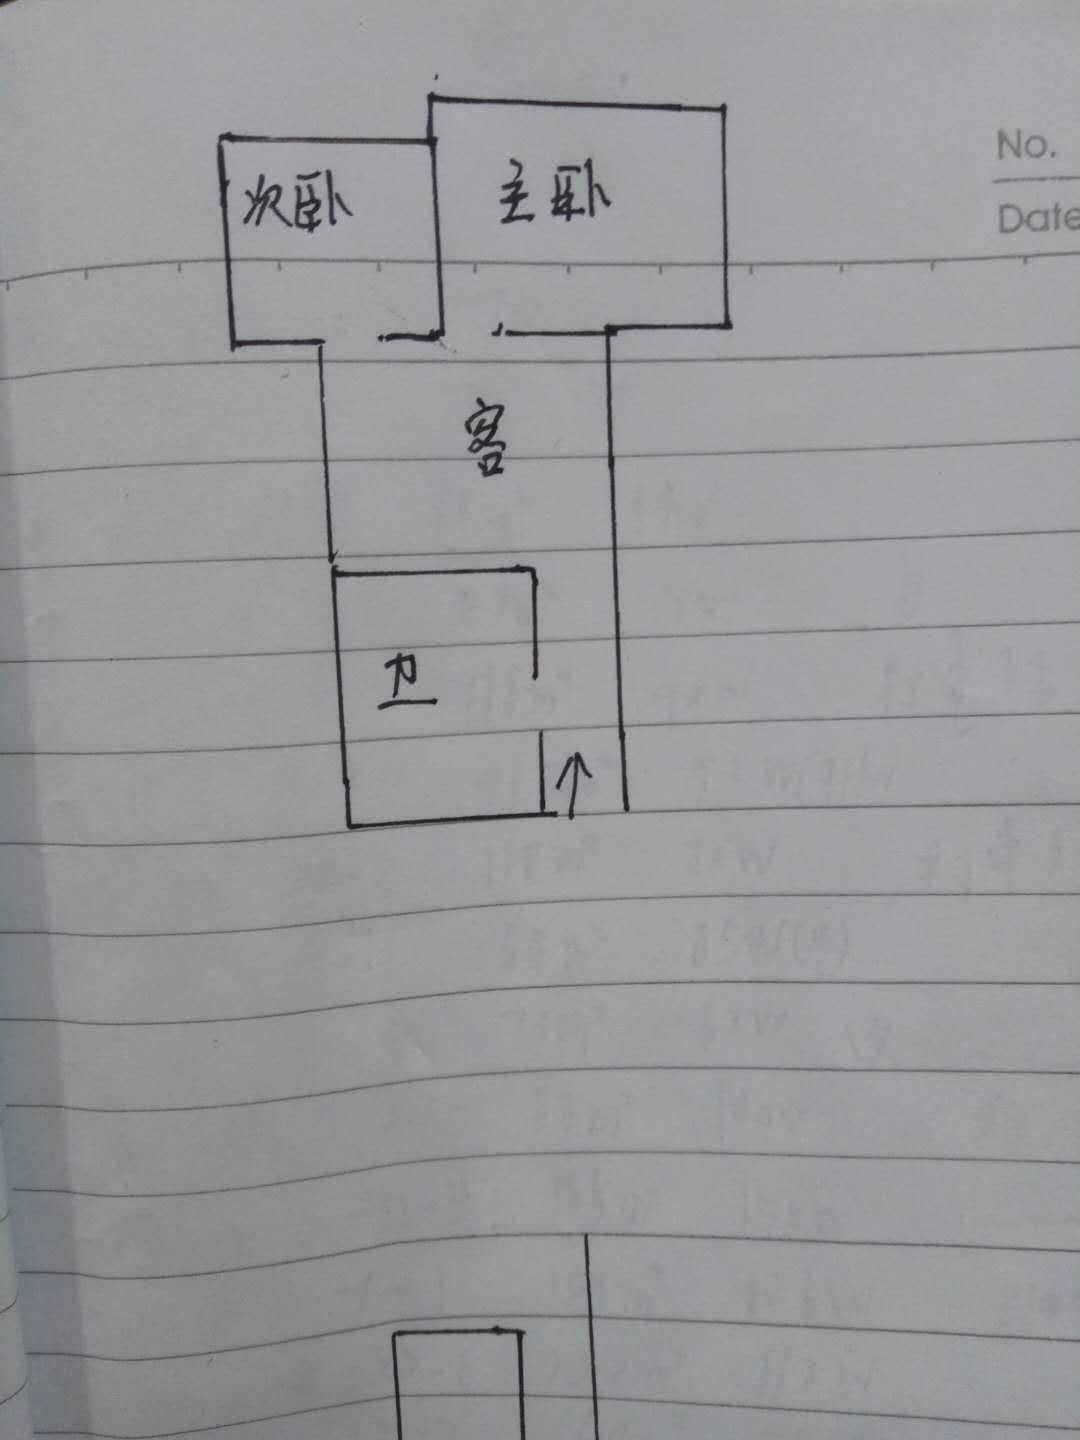 No.
Date
次卧 主卧
客
卫